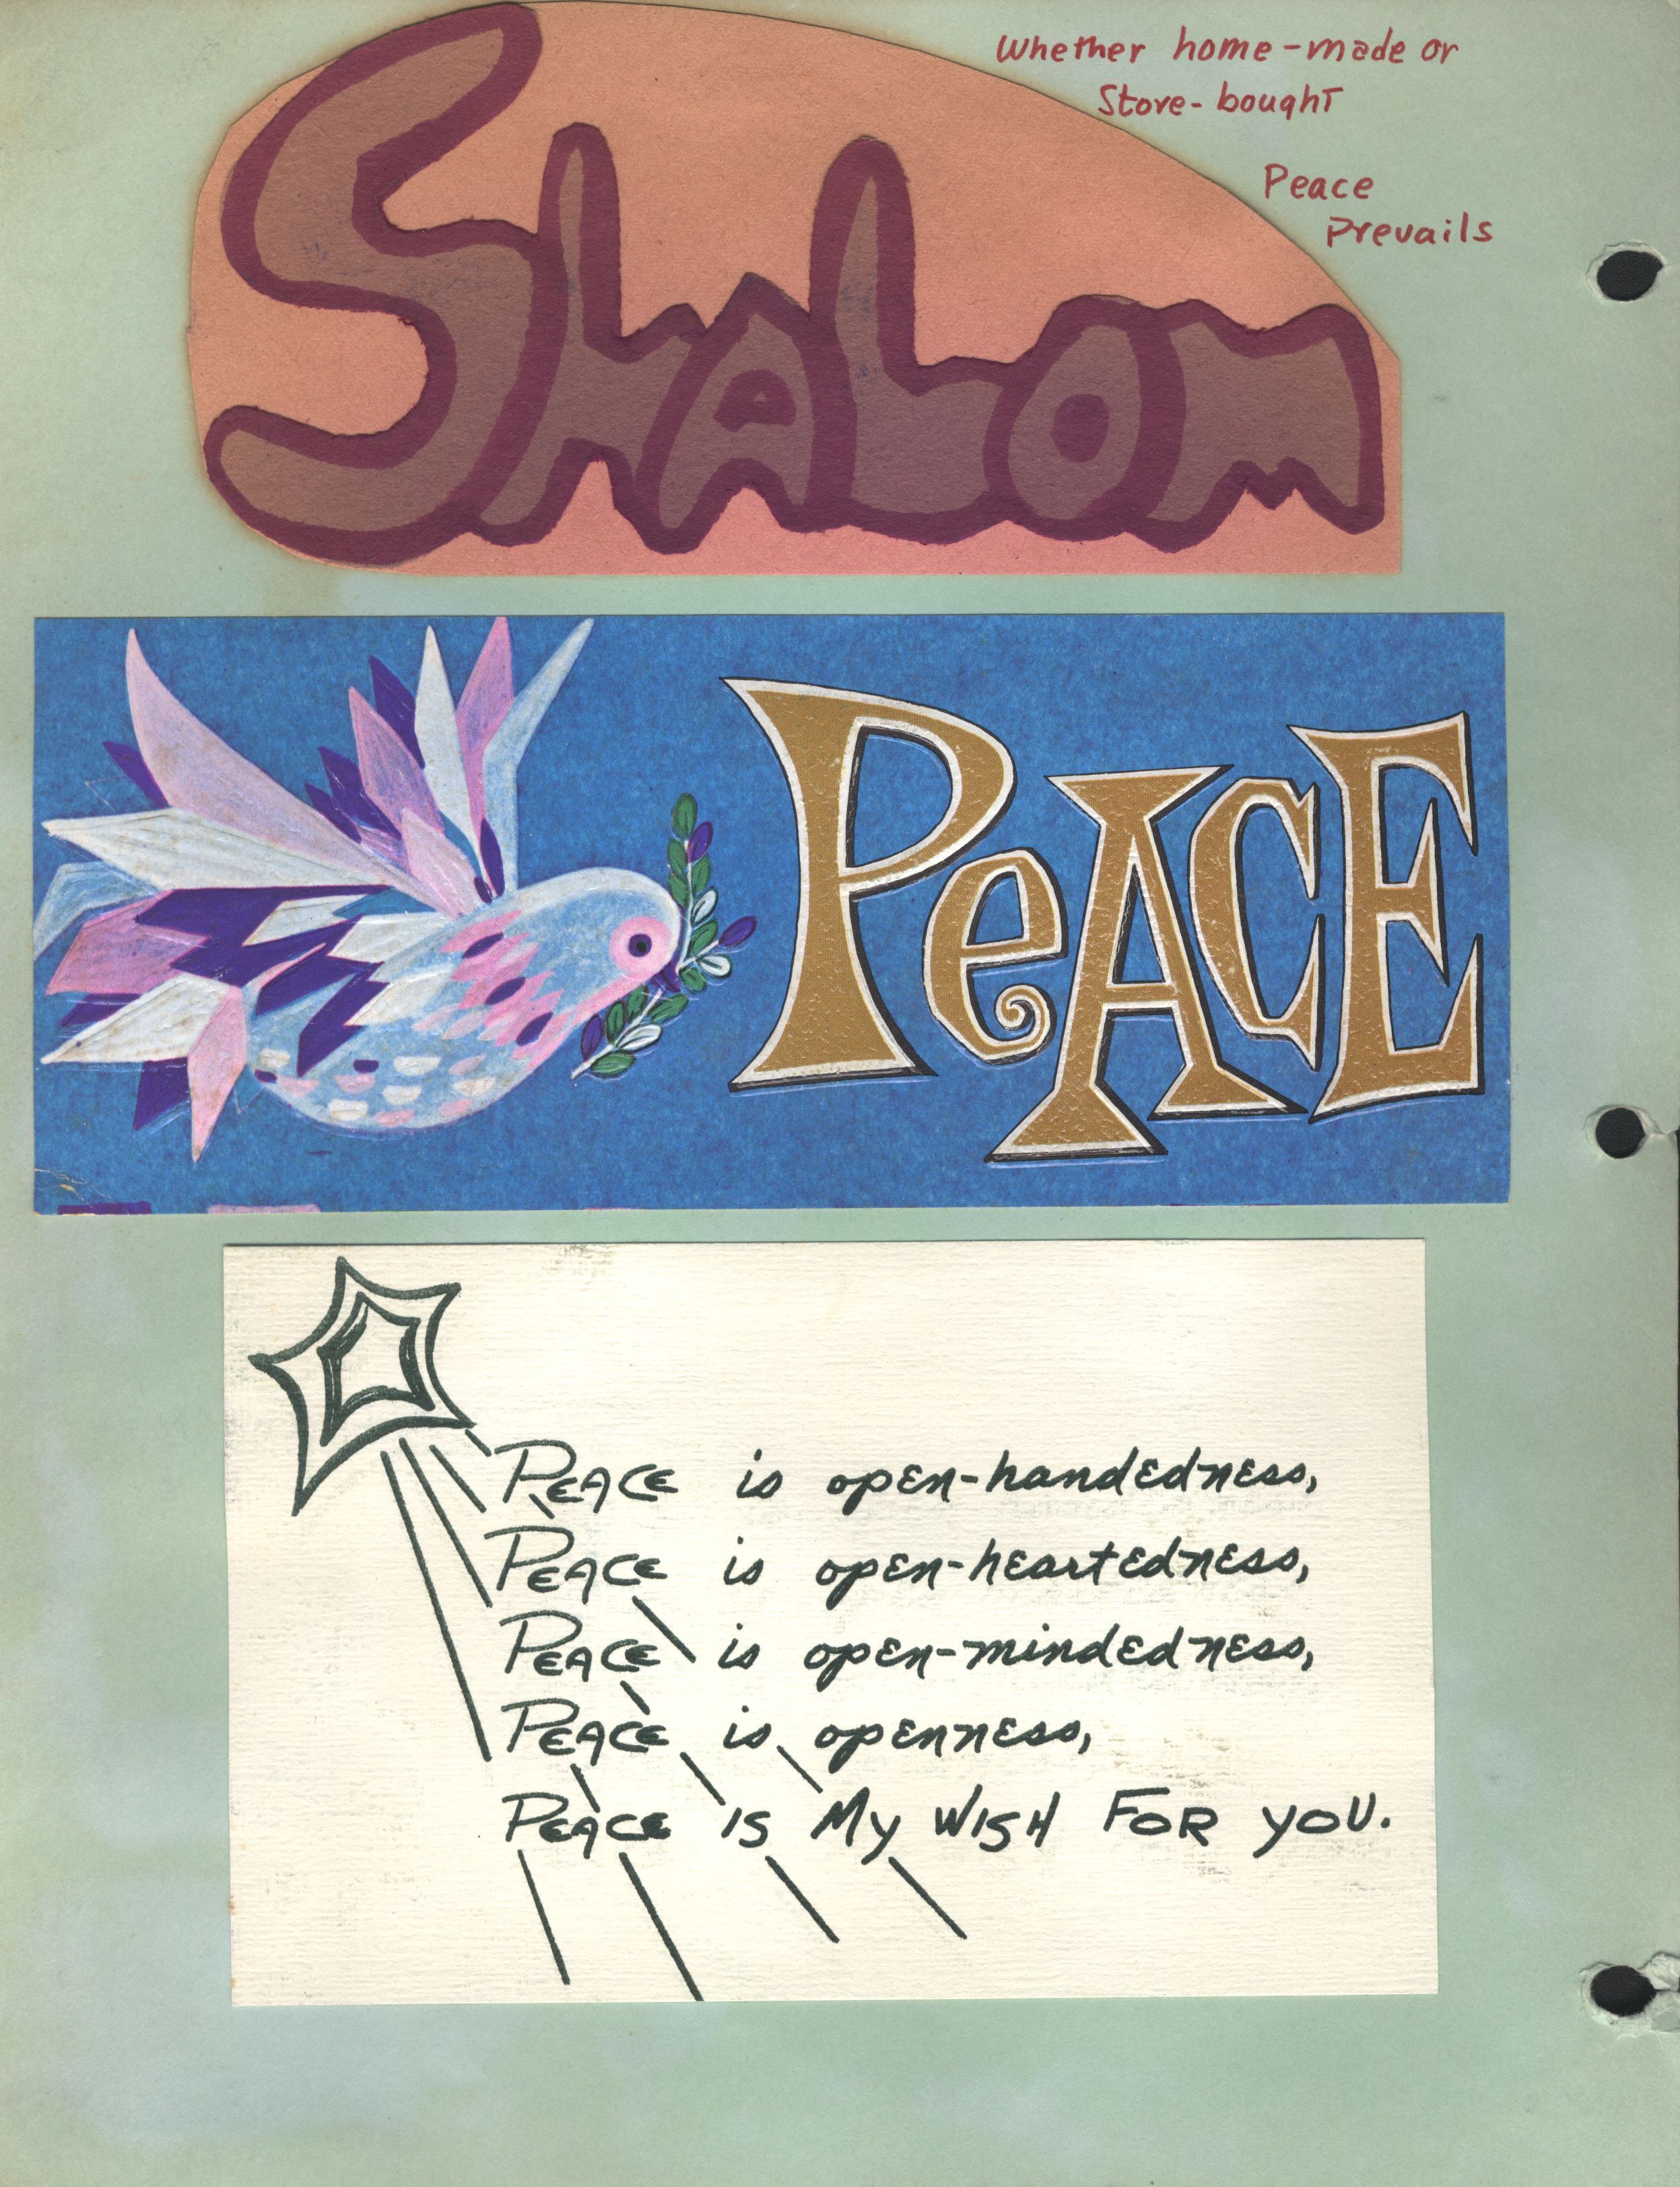 Whether home-made or
Store-bought
Peace
Prevails
Shalom
PeACE
PEACE is opEn-handEdnEss,
PEACE is opEn-hEartEdnEss,
PEACE is opEn-mindEdnEss,
PEACE is opEnnEss,
PEACE IS My WISH FOR YOU.